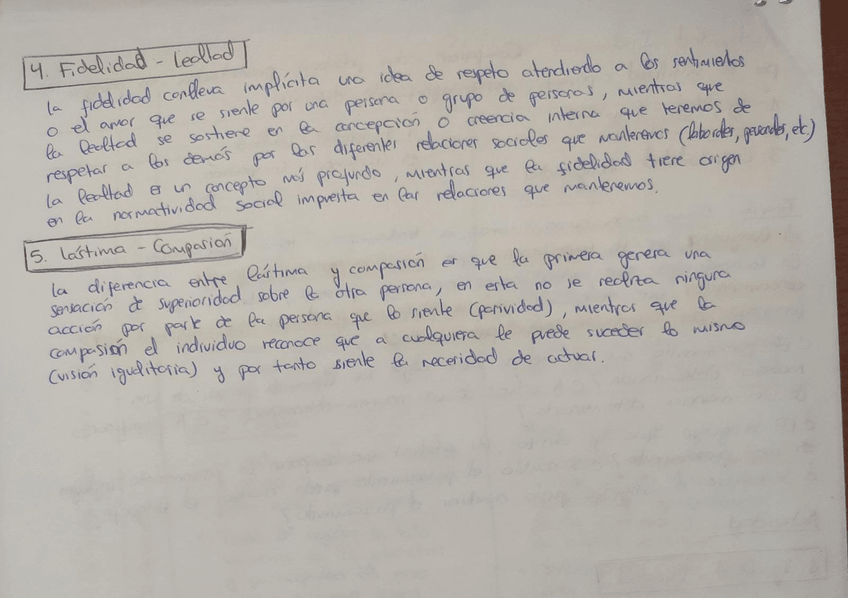 4. Fidelidad - Lealtad
La fidelidad conlleva implícita una idea de respeto atendiendo a los sentimientos
o el amor que se siente por una persona o grupo de personas, mientras que
la lealtad se sostiene en la concepción o creencia interna que tenemos de
respetar a los demás por las diferentes relaciones sociales que mantenemos (laborales, personales, etc.)
La lealtad es un concepto más profundo, mientras que la fidelidad tiene origen
en la normatividad social impuesta en las relaciones que mantenemos.
5. Lástima - Compasión
La diferencia entre lástima y compasión es que la primera genera una
sensación de superioridad sobre la otra persona, en esta no se realiza ninguna
acción por parte de la persona que lo siente (pasividad), mientras que la
compasión el individuo reconoce que a cualquiera le puede suceder lo mismo
(visión igualitaria) y por tanto siente la necesidad de actuar.